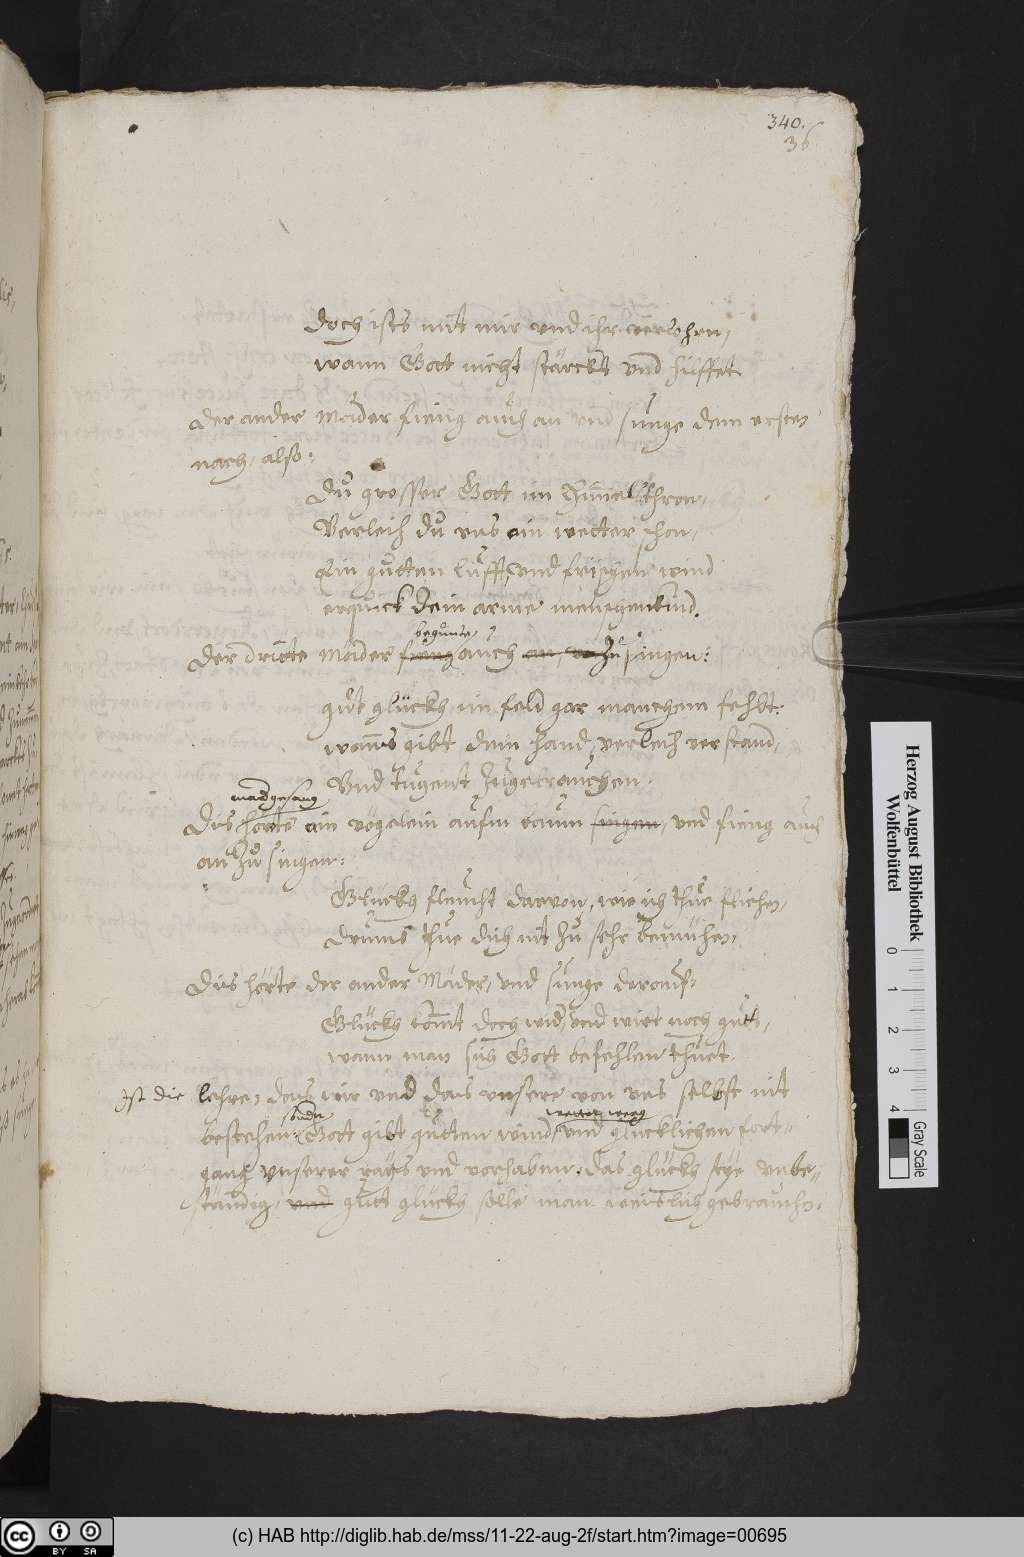 340.
36
doch ists mit mir vnd ihr verlohrn,
wann Gott nicht stärckt vnd hilffet
der ander Mäder fieng auch an vnd sunge dem ersten
nach, also:
Du grosser Gott im Himmelsthron,
Verleih du vns ein wetter schon,
Ein gutten lufft, vnd frischen wind
erquick dein arme menschenkind.
begunte
Der dritte Mäder fieng auch an, zu singen:
gut glückh im feld gar manchem fehlt:
wanns gibt dein hand, verleih verstand,
Vnd tugent zugebrauchen.
madgesang
Dis hörts ein vögelein aufm baum singen, vnd fieng auch
an zu singen:
Glückh fleucht darvon, wie ich thue fliehen,
drumb thue dich nit zu sehr bemühen,
Dis hörte der ander Mäder, vnd sunge darauf:
Glückh kommt doch wid, vnd wirt noch gutt,
wann man sich Gott befehlen thuet.
Ist die lehre, das wir vnd das vnsere von vns selbst nit
sondern
bestehen: Gott gibt gutten wind, vnd glücklichen fort-
gang vnserer rahts vnd vorhaben. das glückh seye vnbe-
ständig, vnd gutt glückh solle man weislich gebrauchen.
Herzog August Bibliothek
Wolfenbüttel
0 1 2 3 4
Gray Scale
cc BY SA
(c) HAB http://diglib.hab.de/mss/11-22-aug-2f/start.htm?image=00695